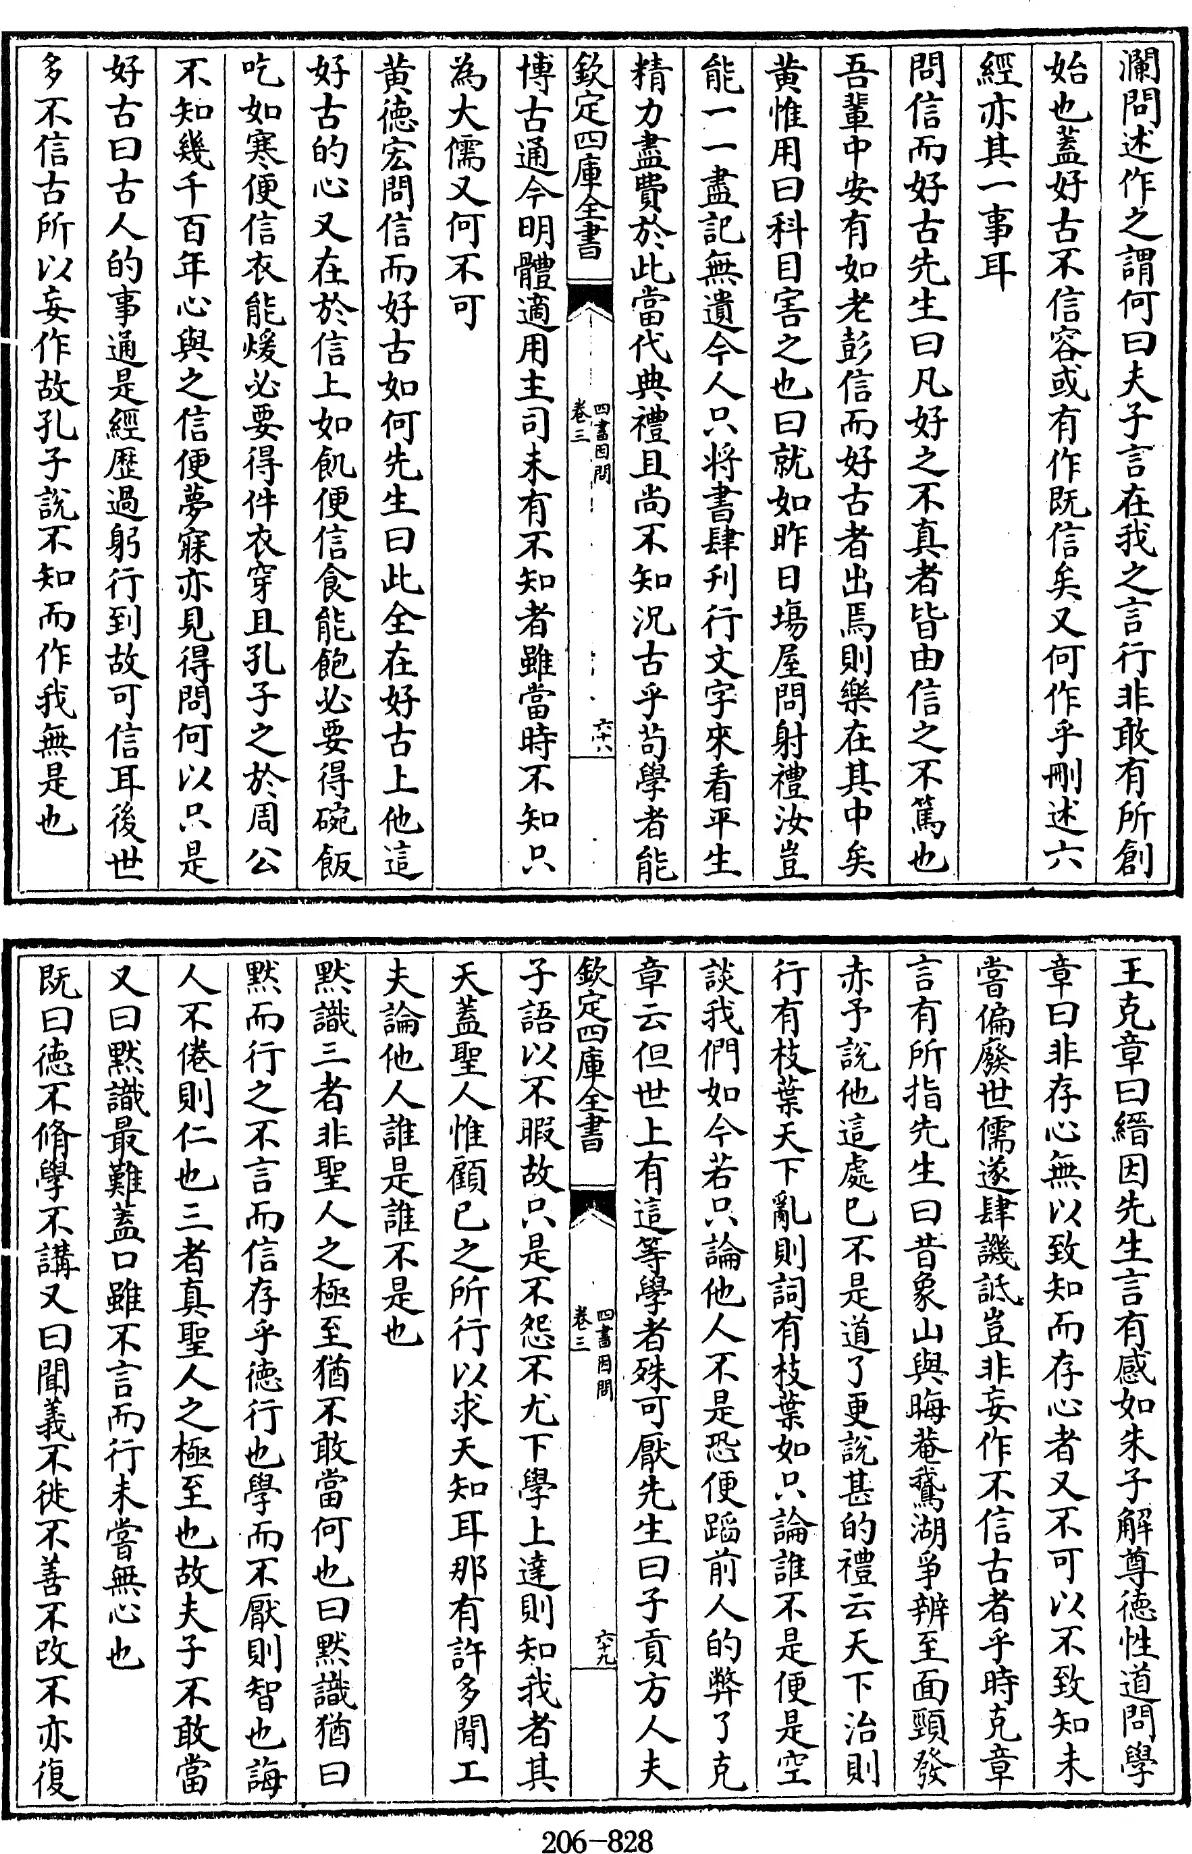 瀾問述作之謂何曰夫子言在我之言行非敢有所創
始也蓋好古不信容或有作既信矣又何作乎刪述六
經亦其一事耳
問信而好古先生曰凡好之不真者皆由信之不篤也
吾輩中安有如老彭信而好古者出焉則樂在其中矣
黄惟用曰科目害之也曰就如昨日場屋問射禮汝豈
能一一盡記無遺今人只將書肆刋行文字來看平生
精力盡費於此當代典禮且尚不知況古乎茍學者能
欽定四庫全書
四書因問
卷三
六十八
博古通今明體適用主司未有不知者雖當時不知只
為大儒又何不可
黄德宏問信而好古如何先生曰此全在好古上他這
好古的心又在於信上如飢便信食能飽必要得碗飯
吃如寒便信衣能煖必要得件衣穿且孔子之於周公
不知幾千百年心與之信便夢寐亦見得問何以只是
好古曰古人的事通是經歷過躬行到故可信耳後世
多不信古所以妄作故孔子說不知而作我無是也
王克章曰縉因先生言有感如朱子解尊德性道問學
章曰非存心無以致知而存心者又不可以不致知未
嘗偏廢世儒遂肆譏詆豈非妄作不信古者乎時克章
言有所指先生曰昔象山與晦菴鵞湖爭辨至面頸發
赤予說他這處已不是道了更說甚的禮云天下治則
行有枝葉天下亂則詞有枝葉如只論誰不是便是空
談我們如今若只論他人不是恐便蹈前人的弊了克
章云但世上有這等學者殊可厭先生曰子貢方人夫
欽定四庫全書
四書因問
卷三
六十九
子語以不暇故只是不怨不尤下學上達則知我者其
天蓋聖人惟顧已之所行以求天知耳那有許多閒工
夫論他人誰是誰不是也
黙識三者非聖人之極至猶不敢當何也曰黙識猶曰
黙而行之不言而信存乎德行也學而不厭則智也誨
人不倦則仁也三者真聖人之極至也故夫子不敢當
又曰黙識最難蓋口雖不言而行未嘗無心也
既曰德不脩學不講又曰聞義不徙不善不改不亦復
206-828